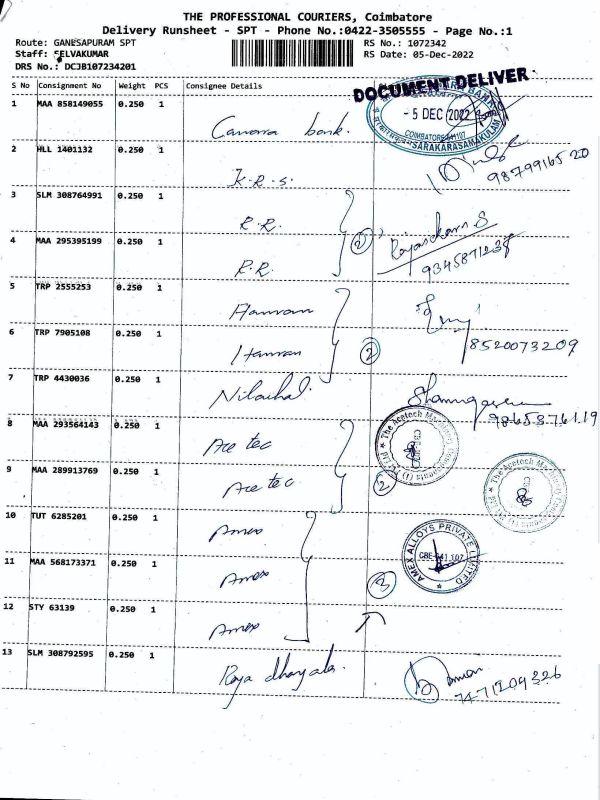 THE PROFESSIONAL COURIERS, Coimbatore
Delivery Runsheet - SPT - Phone No.:0422-3505555 - Page No.:1
Route: GANESAPURAM SPT RS No.: 1072342
Staff: SELVAKUMAR RS Date: 05-Dec-2022
DRS No.: DCJB107234201
S No Consignment No Weight PCS Consignee Details
DOCUMENT DELIVER
1 MAA 858149055 0.250 1 Canara bank.
- 5 DEC 2022
COIMBATORE-641107
SARAKARASAMAKULAM
2 HLL 1401132 0.250 1 K.R.S.
9879916520
3 SLM 308764991 0.250 1 R.R.
2
4 MAA 295395199 0.250 1 R.R.
9345871238
5 TRP 2555253 0.250 1
6 TRP 7905108 0.250 1 2
8520073209
7 TRP 4430036 0.250 1
9865376119
8 MAA 293564143 0.250 1 Ace tec
The Acetech Machinery Components (I) P Ltd
9 MAA 289913769 0.250 1 Ace tec 2
The Acetech Machinery Components (I) P Ltd
10 TUT 6285201 0.250 1 Amex
AMEX ALLOYS PRIVATE LIMITED
CBE-641 107
11 MAA 568173371 0.250 1 Amex 3
12 STY 63139 0.250 1 Amex
13 SLM 308792595 0.250 1
7471204326